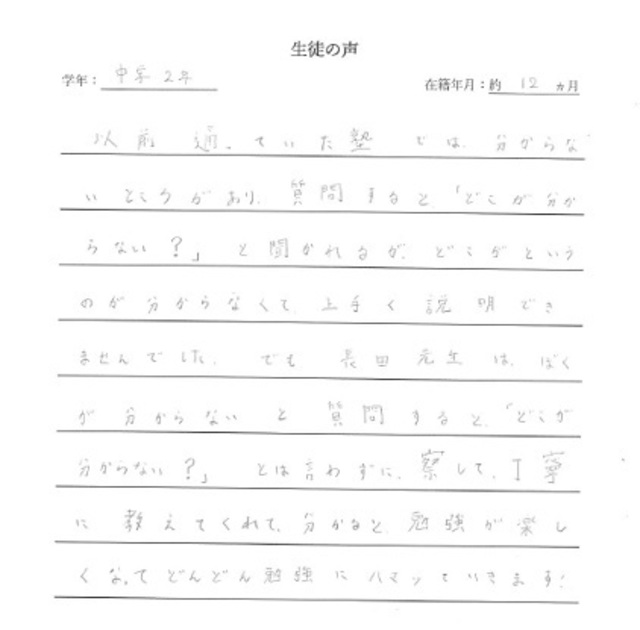 生徒の声
学年：中学2年
在籍年月：約 12 ヵ月
以前 通っていた塾 では、分からな
いところがあり、質問すると、「どこが分か
らない？」と聞かれるが、どこがという
のが分からなくて、上手く説明でき
ませんでした。でも 長田先生は、ぼく
が分からないと質問すると、「どこが
分からない？」とは言わずに、察して、丁寧
に教えてくれて、分かると、勉強が楽し
くなってどんどん勉強にハマっていきます！